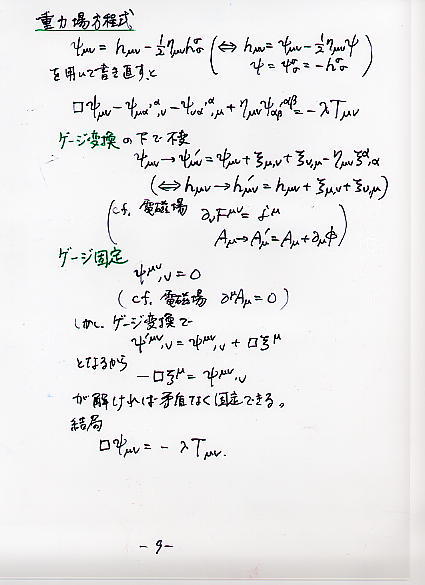 重力場方程式
ψμν = hμν − ½ημνh^σ_σ (⇔ hμν = ψμν − ½ημνψ
ψ = ψ^σ_σ = −h^σ_σ )
を用いて書き直すと
□ψμν − ψμα,^α,ν − ψνα,^α,μ + ημνψαβ,^αβ = −λTμν
ゲージ変換の下で不変
ψμν → ψ'μν = ψμν + ξμ,ν + ξν,μ − ημνξ^α,α
(⇔ hμν → h'μν = hμν + ξμ,ν + ξν,μ)
(cf. 電磁場 ∂νF^μν = j^μ
Aμ → A'μ = Aμ + ∂μφ )
ゲージ固定
ψ^μν,ν = 0
(cf. 電磁場 ∂^μAμ = 0)
しかし、ゲージ変換で
ψ'^μν,ν = ψ^μν,ν + □ξ^μ
となるから
−□ξ^μ = ψ^μν,ν
が解ければ矛盾なく固定できる。
結局
□ψμν = − λTμν.
− 9 −